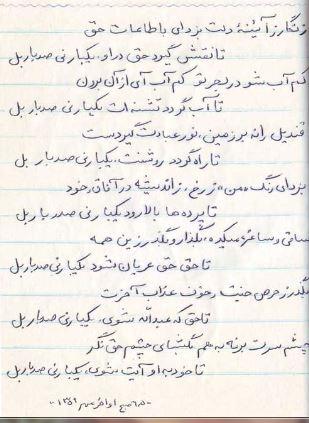 زنگار ز آئینهٔ دلت بزدای با طاعات حق
تا نقش گیرد حق در او، یکبار نی صد بار بل
کم آب شو در بحر تو کم آب آی از آن برون
تا آب گردد تشنه ات یکبار نی صد بار بل
قندیل را نه بر زمین، نور عبادت گیر دست
تا راه گردد روشنت، یکبار نی صد بار بل
بزدای رنگ «من» ز رخ، ز اندیشه در آفاق خود
تا پرده ها بالا رود یکبار نی صد بار بل
ساقی و ساغر میکده، بگذار و بگذر زین همه
تا حق حق عریان شود یکبار نی صد بار بل
بگذر ز حرص جنت و خوف عذاب آخرت
تا حق که عبدالله شوی، یکبار نی صد بار بل
چشم سرت برنه به هم بگشای چشم حق نگر
تا خود به او آیت شوی، یکبار نی صد بار بل
صبح اواخر مهر ۱۳۵۹